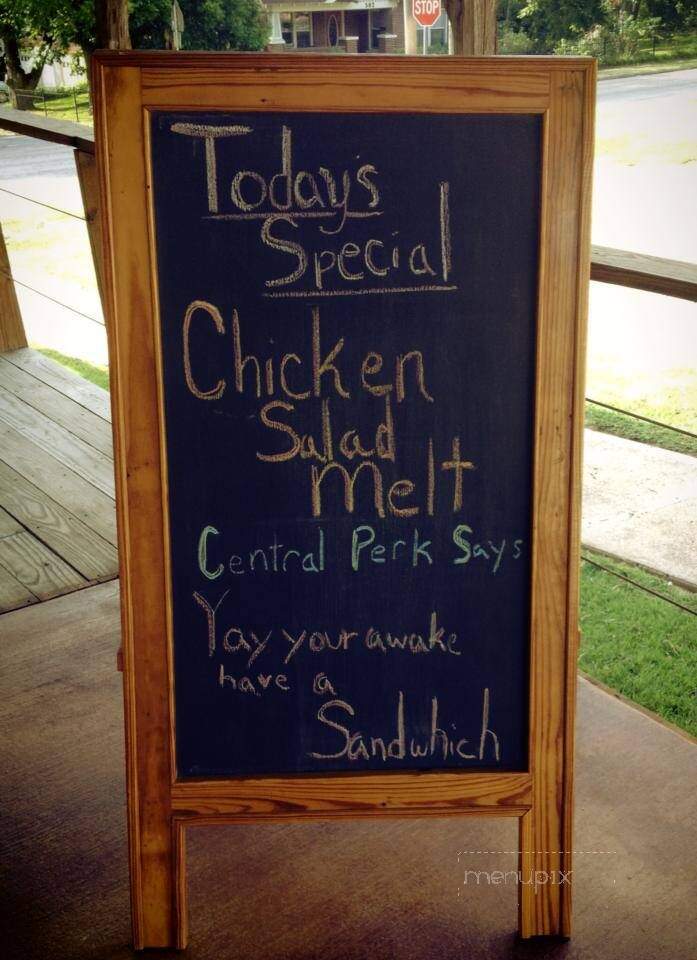 STOP
Today's
Special
Chicken
Salad
Melt
Central Perk Says
Yay your awake
have a
Sandwhich
menupix